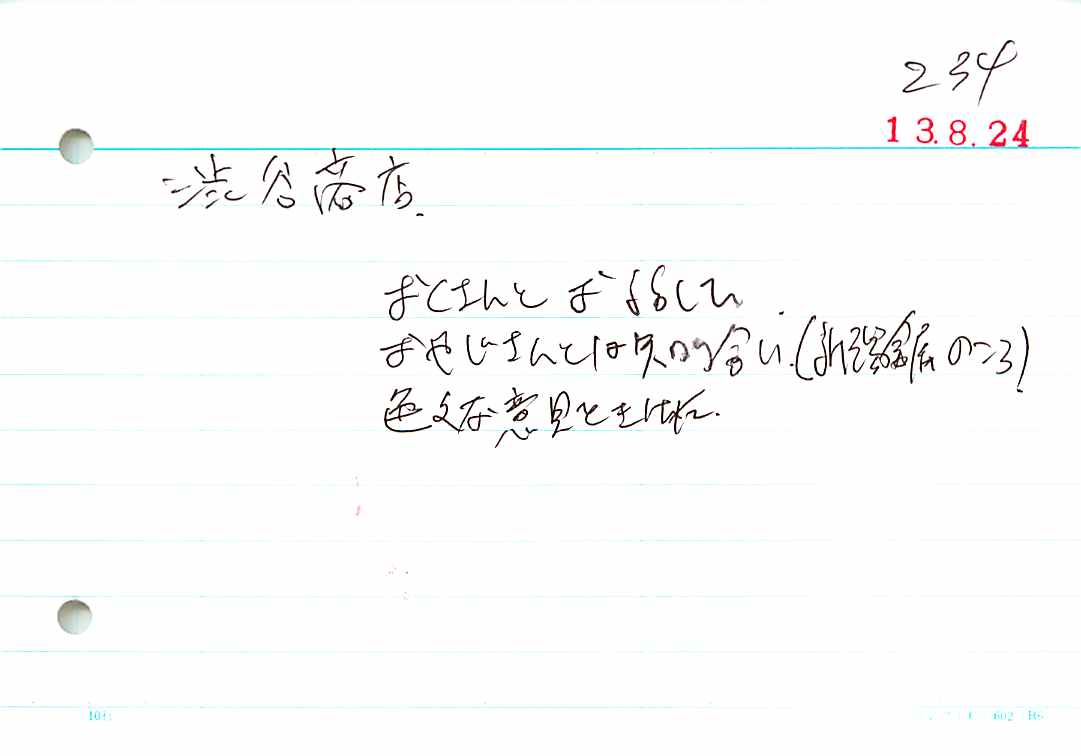 234
13.8.24
渋谷商店.
おくさんと お話して
おやじさんとは知り合い.( のころ)
色々な意見をきけた.